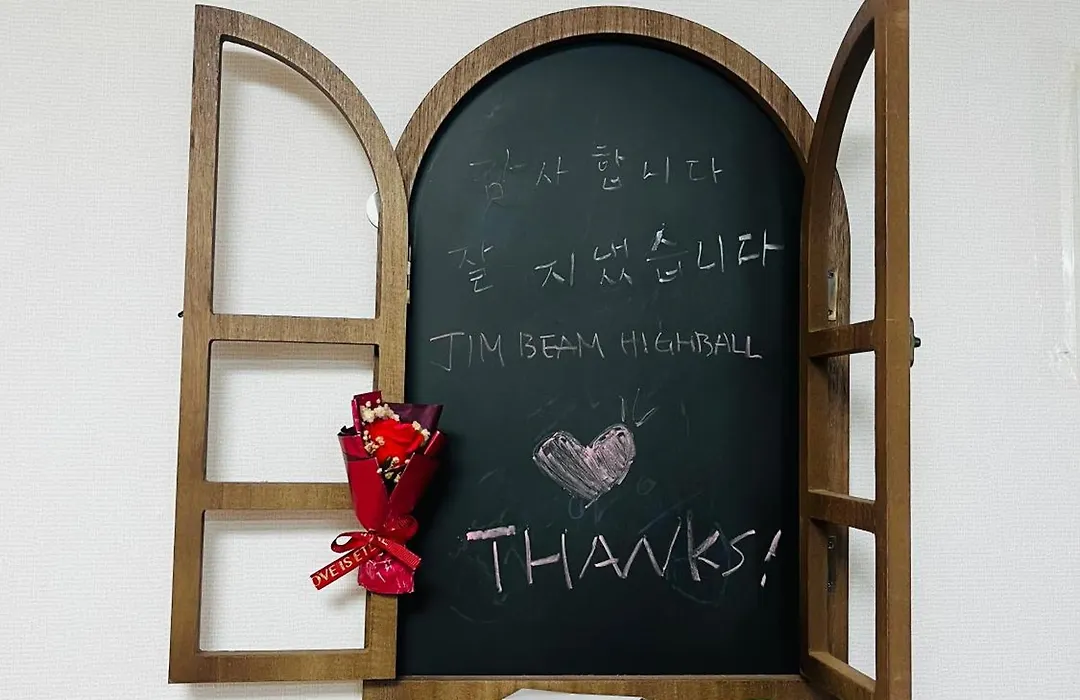 감사 합니다
잘 지냈습니다
JIM BEAM HIGHBALL
THANKS!
OVE IS ETE